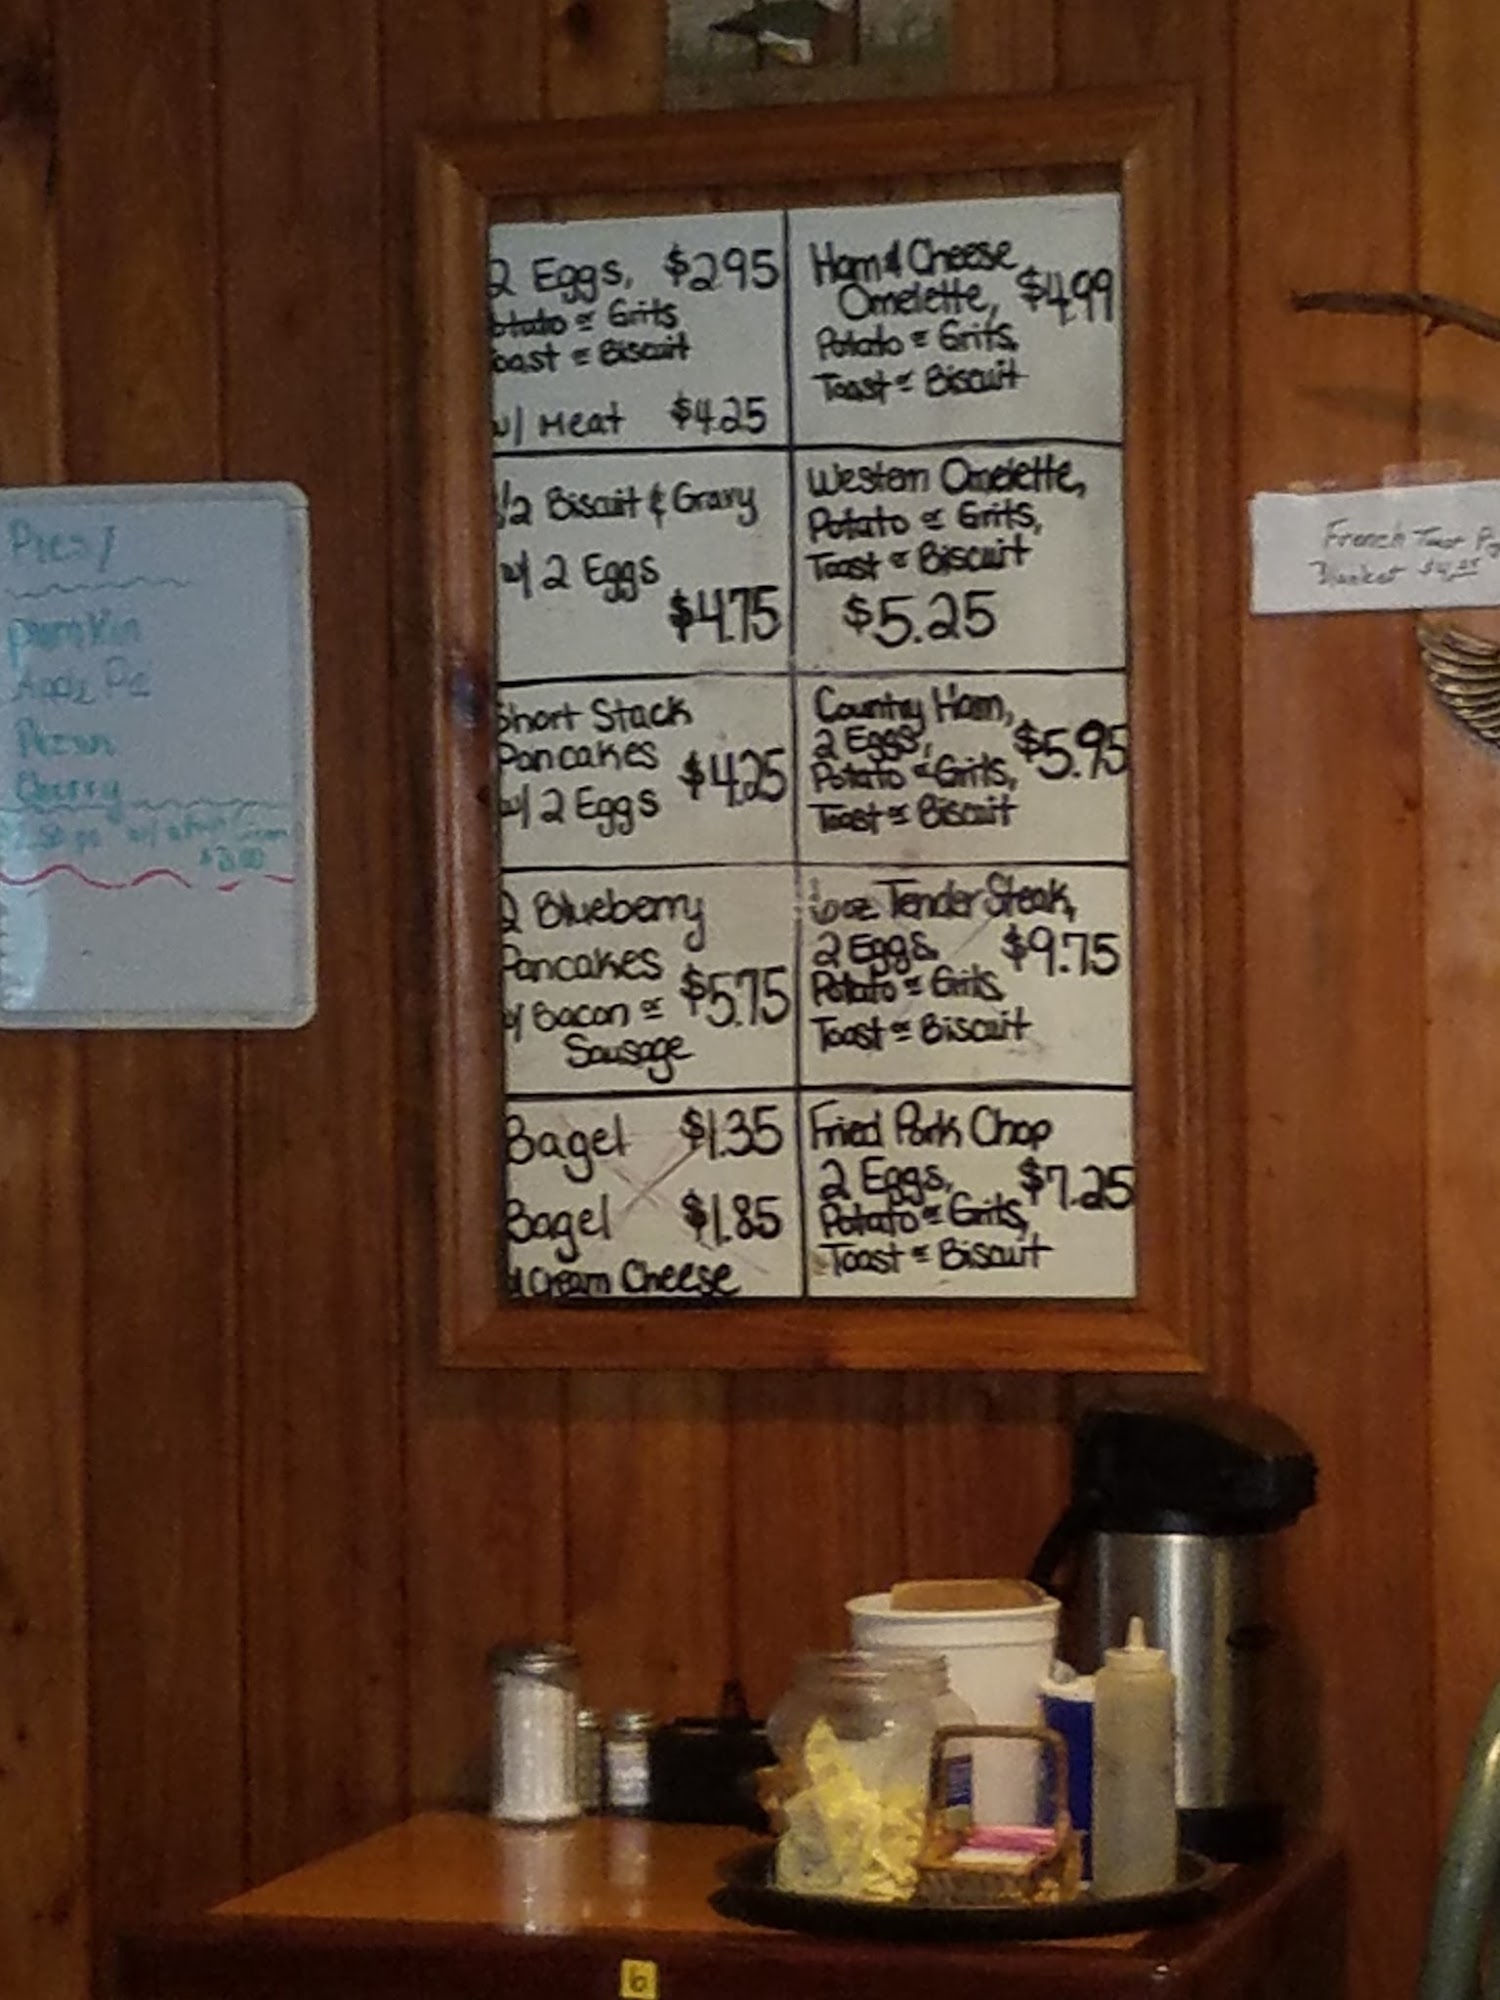 Pies/
Pumkin
Apple Pie
Pecan
Cherry
$3.00
2 Eggs, $2.95
Potato or Grits
Toast or Biscuit
w/ Meat $4.25
1/2 Biscuit & Gravy
w/ 2 Eggs
$4.75
Short Stack
Pancakes
w/ 2 Eggs $4.25
2 Blueberry
Pancakes
w/ Bacon or $5.75
Sausage
Bagel $1.35
Bagel $1.85
w/ Cream Cheese
Ham & Cheese
Omelette, $4.99
Potato or Grits,
Toast or Biscuit
Western Omelette,
Potato or Grits,
Toast or Biscuit
$5.25
Country Ham,
2 Eggs, $5.95
Potato or Grits,
Toast or Biscuit
6oz Tender Steak,
2 Eggs, $9.75
Potato or Grits
Toast or Biscuit
Fried Pork Chop
2 Eggs, $7.25
Potato or Grits,
Toast or Biscuit
French Toast
Blanket
6